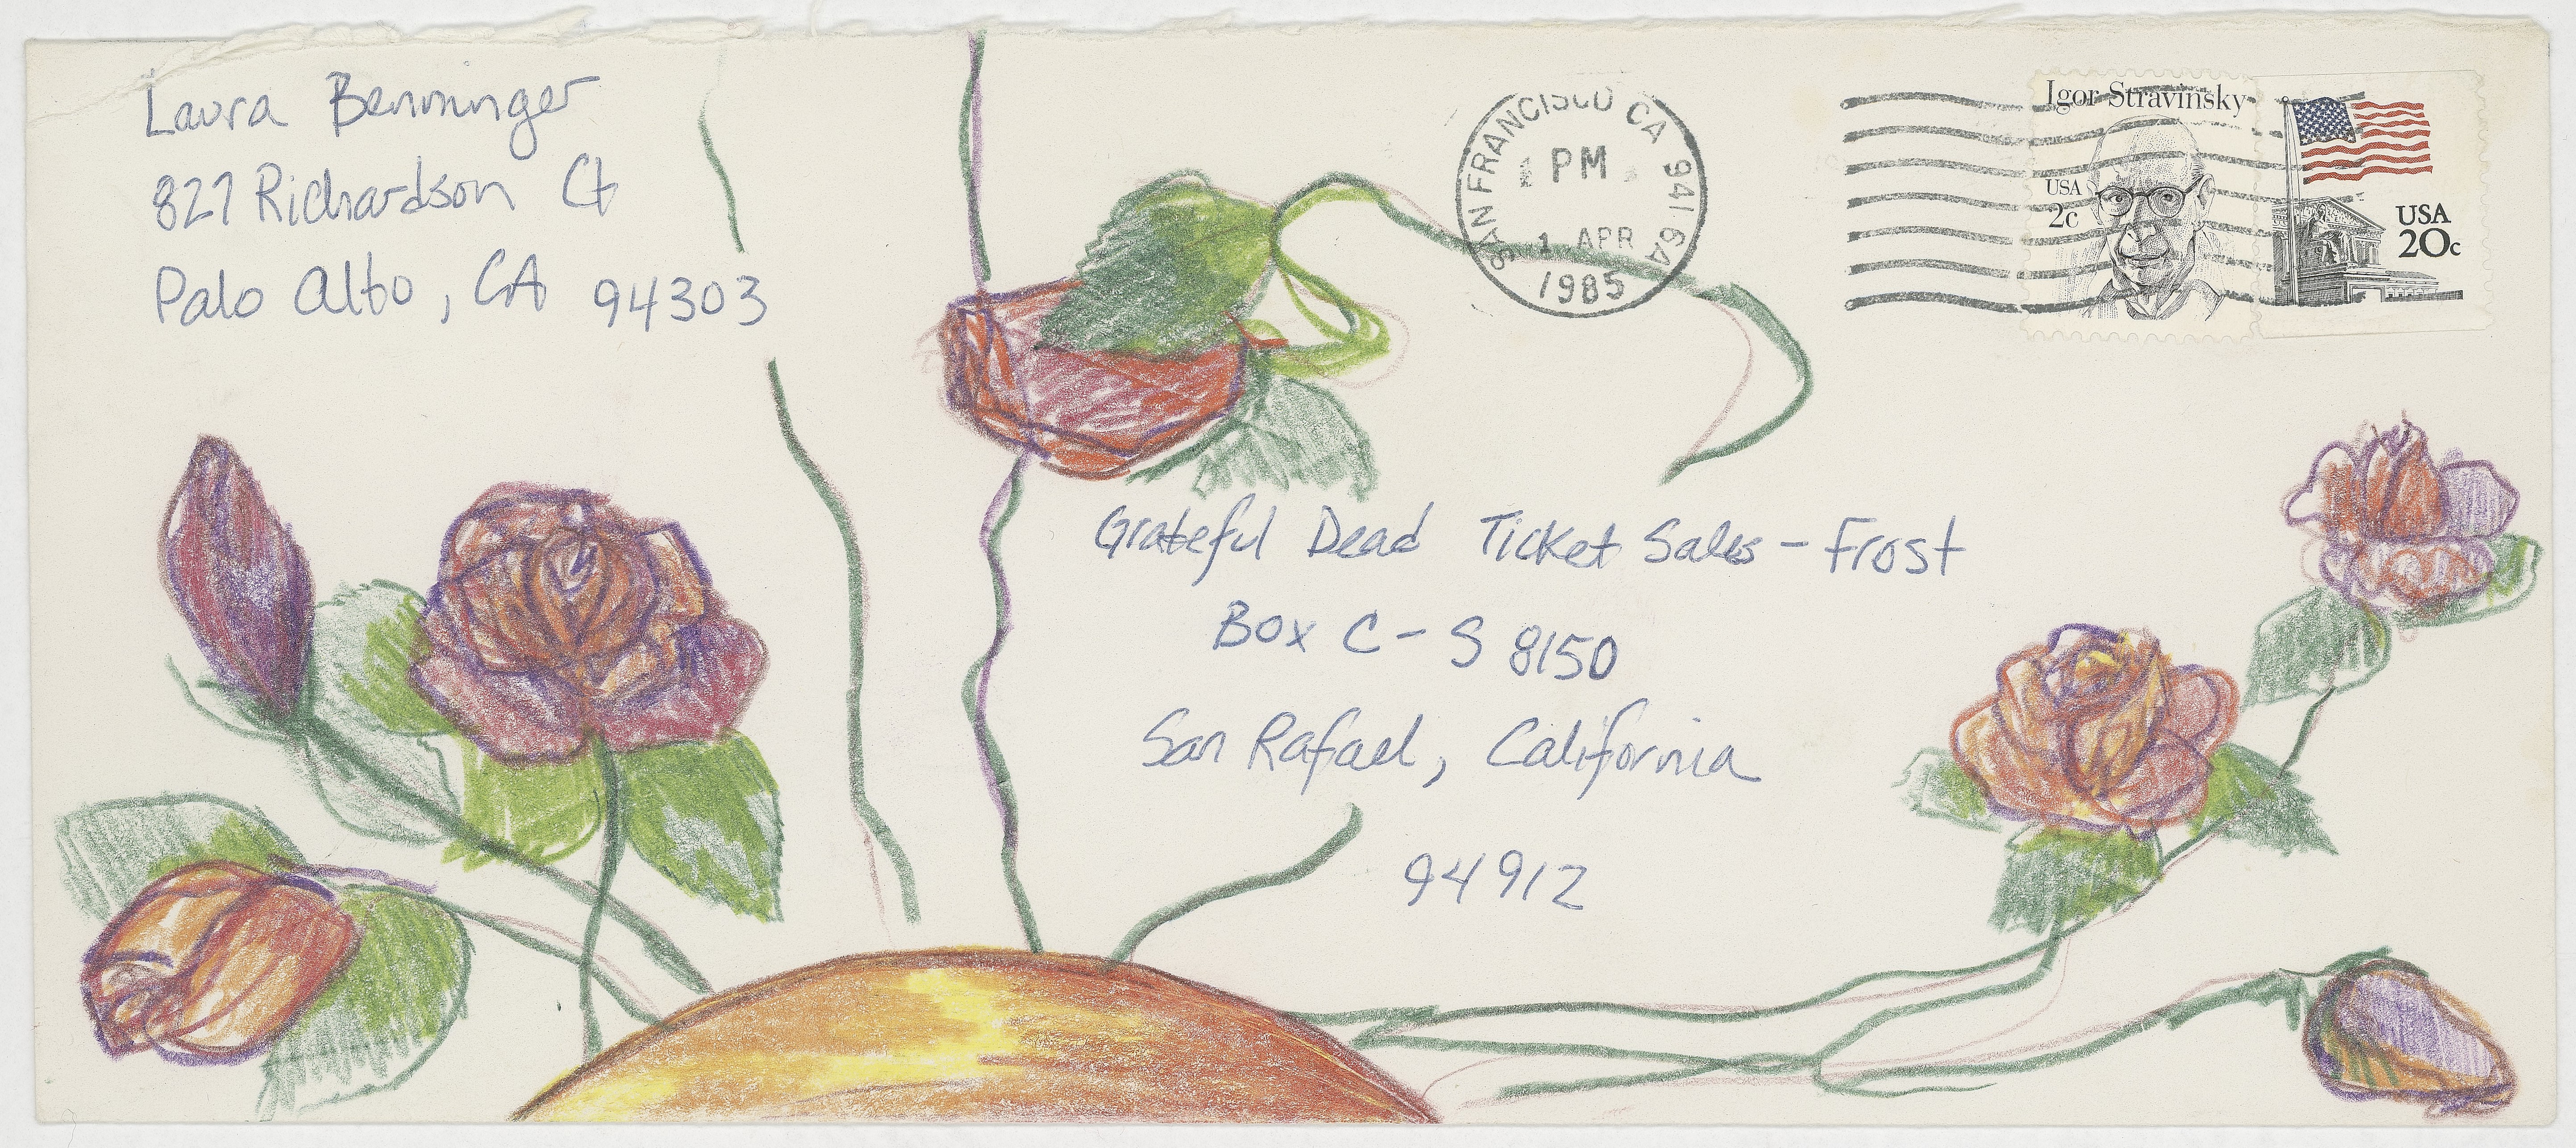 Laura Benninger
827 Richardson Ct
Palo Alto, CA 94303
SAN FRANCISCO CA 941 6A
PM
1 APR
1985
Igor Stravinsky
USA
2c
USA
20c
Grateful Dead Ticket Sales - Frost
Box C-S 8150
San Rafael, California
94912